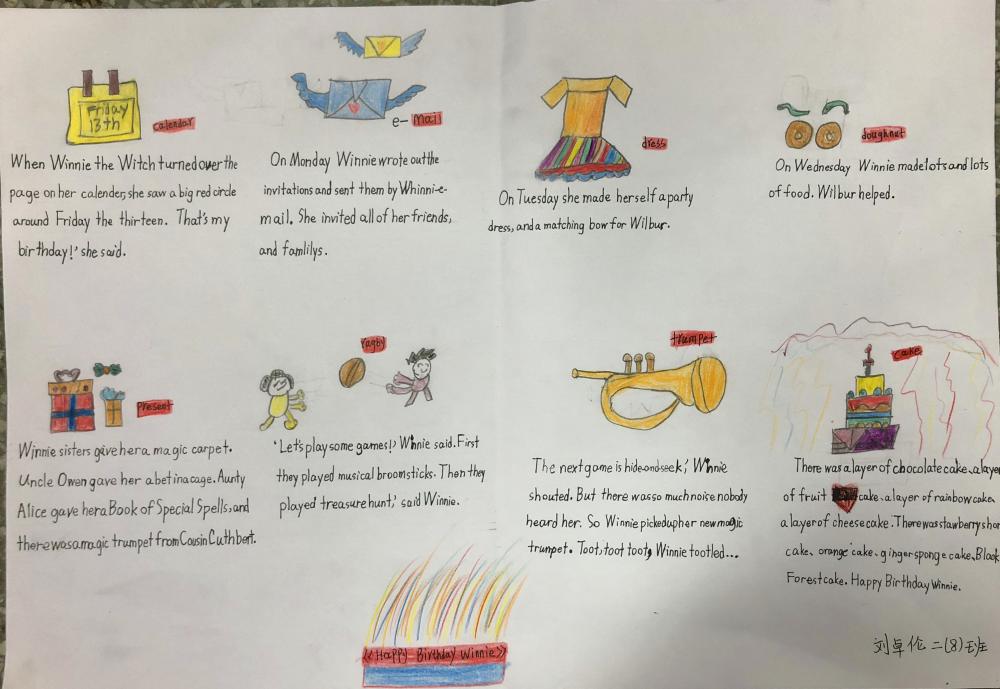 Friday
13th
calendar
When Winnie the Witch turned over the
page on her calender, she saw a big red circle
around Friday the thirteen. That's my
birthday!' she said.
e-mail
On Monday Winnie wrote out the
invitations and sent them by Whinni-e-
mail. She invited all of her friends,
and famlilys.
dress
On Tuesday she made herself a party
dress, and a matching bow for Wilbur.
doughnut
On Wednesday Winnie made lots and lots
of food. Wilbur helped.
Present
Winnie sisters give her a magic carpet.
Uncle Owen gave her a bet in a cage. Aunty
Alice gave her a Book of Special Spells, and
there was a magic trumpet from Cousin Cuthbert.
ragby
'Let's play some games!' Winnie said. First
they played musical broomsticks. Then they
played treasure hunt,' said Winnie.
trumpet
The next game is hide-and-seek,' Winnie
shouted. But there was so much noise nobody
heard her. So Winnie picked up her new magic
trunpet. Toot, toot toot, Winnie tootled...
cake
There was a layer of chocolate cake, a laye
of fruit cake, a layer of rainbow cake,
a layer of cheese cake. There was stawberry shor
cake, orange cake, ginger sponge cake, Black
Forest cake. Happy Birthday Winnie.
《Happy Birthday Winnie》
刘卓伦 二(8)班